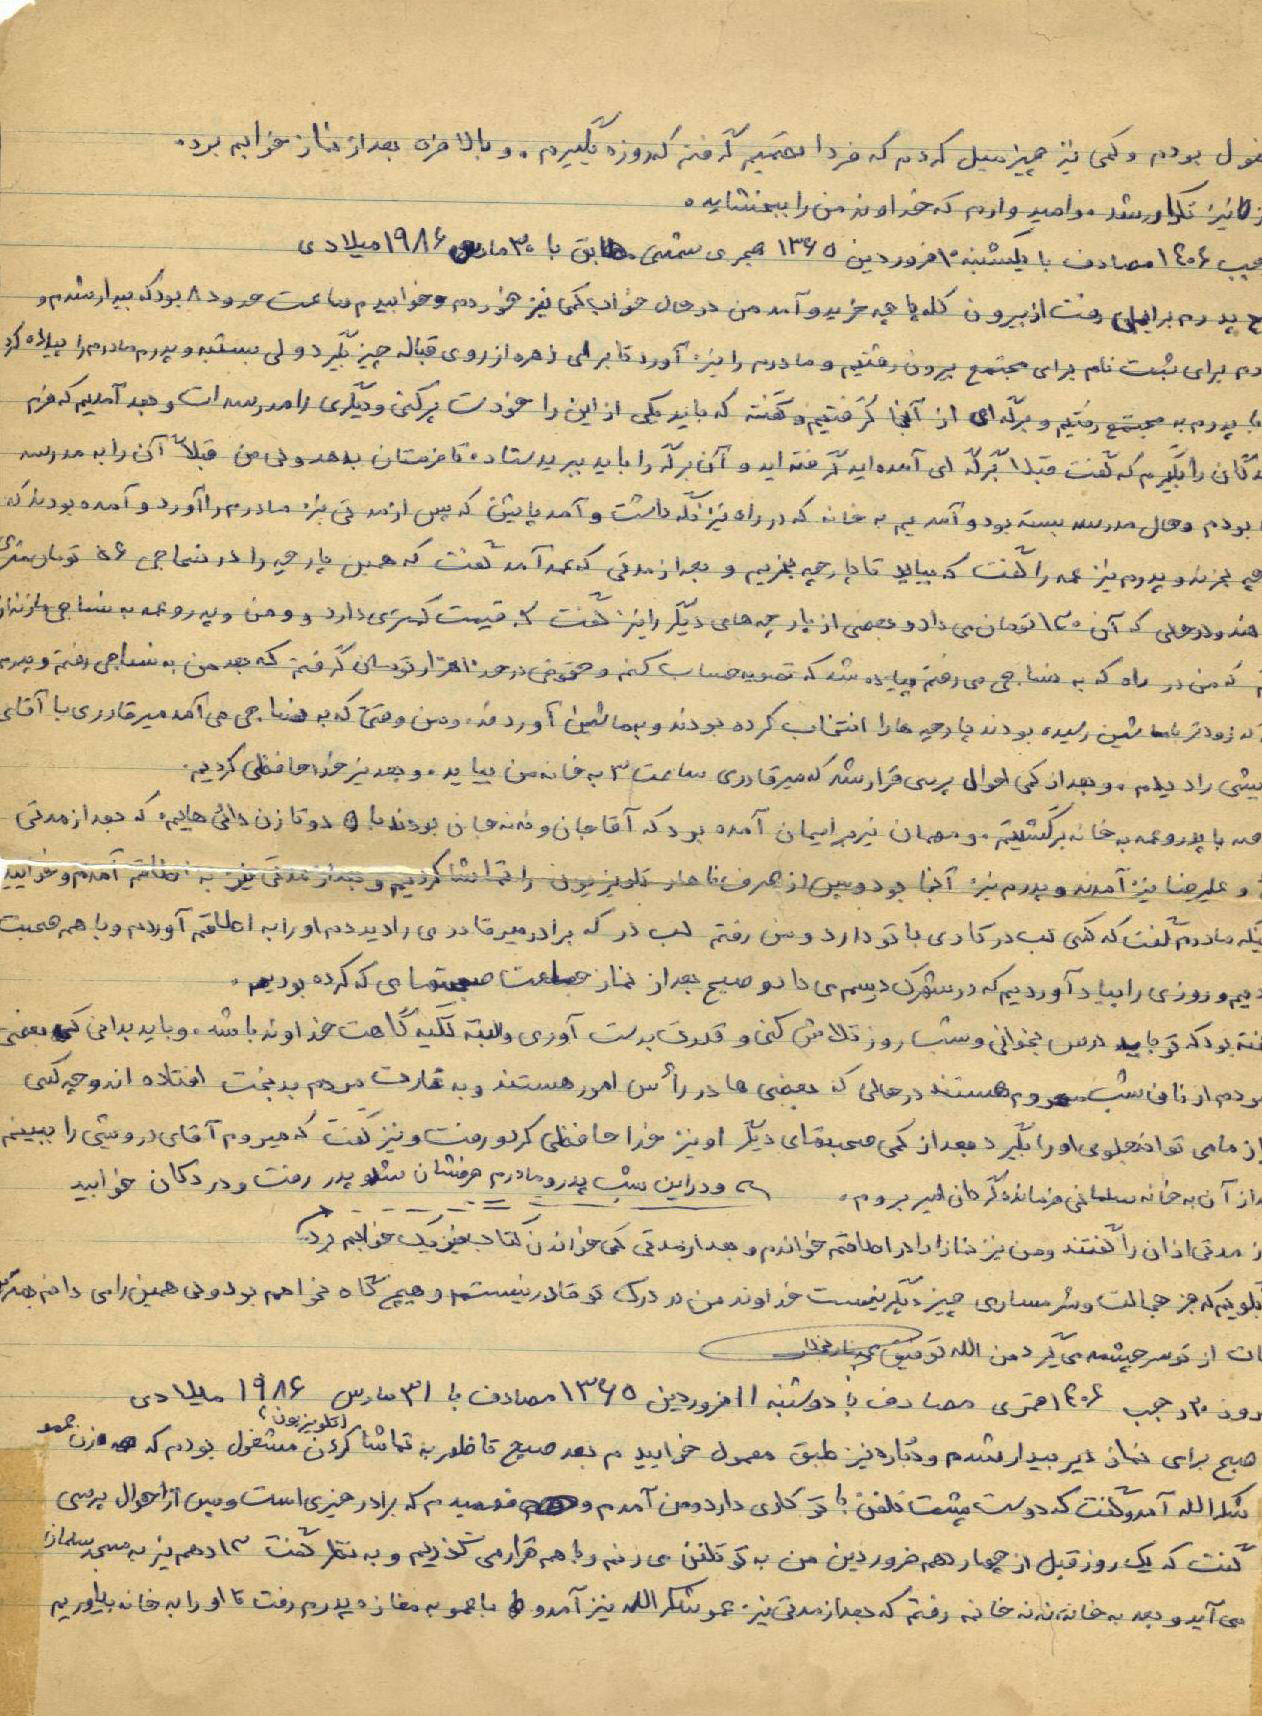 بودم و کمی نیز چیز میل کردم که فردا تصمیم گرفتم که روزه بگیرم . و بالاخره بعد از نماز خوابم برد .
نیز تکرار شد . و امیدوارم که خداوند من را ببخشاید .
۱۴۰۶ مصادف با یکشنبه ۱۰ فروردین ۱۳۶۵ هجری شمسی مطابق با ۳۰ مارس ۱۹۸۶ میلادی
پدرم برای رفت از بیرون کله پاچه خرید و آمد من در حال خواب کمی نیز خوردم و خوابیدم ساعت حدود ۸ بود که بیدار شدم و
برای ثبت نام برای مجتمع بیرون رفتیم و مادرم را نیز آورد تا برای زهره از روی قباله چیز بگیرد ولی بسته و پدرم مادرم را پیاده کرد
پدرم به مجتمع رفتیم و برگه ای از آنجا گرفتیم و گفته که باید یکی از این را خودت پر کنی و دیگری را مدرسه ات و بعد آمدیم که فرم
را بگیرم که گفت قبلا برگه ای آمده اید گرفته اید و آن برگه را باید ببرید ستاد تا فرمتان بدهد ولی من قبلاً آن را به مدرسه
بودم و حال مدرسه بسته بود و آمدیم به خانه که در راه نیز نگه داشت و آمد پایین که پس از مدتی نیز مادرم را آورد و آمده بودند که
بخرند و پدرم نیز عمه را گفت که بیاید تا پارچه بخریم و بعد از مدتی که عمه آمد گفت که همین پارچه را در نساجی ۵۶ تومان متری
و در حالی که آن ۱۳۰ تومان می داد و بعضی از پارچه های دیگر را نیز گفت که قیمت کمتری دارد و من و پدر و عمه به نساجی
که من در راه که به نساجی می رفتم پیاده شد که تصویه حساب کنم و حقوقی در حد ۱۰ هزار تومان گرفتم که بعد من به نساجی رفتم و پدرم
که زودتر با ماشین رسیده بودند پارچه ها را انتخاب کرده بودند و به ماشین آوردند . و من وقتی که به نساجی می آمدم میرقادری با آقای
را دیدم . و بعد از کمی احوال پرسی قرار شد که میرقادری ساعت ۳ به خانه من بیاید . و بعد نیز خداحافظی کردیم .
با پدر و عمه به خانه برگشتیم . و مهمان نیز برایمان آمده بود که آقاجان و ننه جان بودند با دو تا زن دائی هایم . که بعد از مدتی
و علیرضا نیز آمدند و پدرم نیز آنجا بود و پس از صرف ناهار تلویزیون را تماشا کردیم و بعد از مدتی نیز به اطاقم آمدم و خوابیدم
مادرم گفت که کسی لب در کاری با تو دارد و من رفتم لب در که برادر میرقادری را دیدم او را به اطاقم آوردم و با هم صحبت
و روزی را بیاد آوردیم که در شهرک درسم می داد و صبح بعد از نماز جماعت صحبتهای که کرده بودیم .
بود که تو باید درس بخوانی و شب روز تلاش کنی و قدرت بدست آوری والبته تکیه گاهت خداوند باشد . و باید بدانی که بعضی
مردم از نان شب محروم هستند در حالی که بعضی ها در رأس امور هستند و به غارت مردم بدبخت افتاده اند و چه کسی
از ما می تواند جلوی او را بگیرد و بعد از کمی صحبتهای دیگر او نیز خداحافظی کرد و رفت و نیز گفت که میروم آقای درویشی را ببینم
از آن به خانه سلمانی فرمانده گردان امیر بروم . و در این شب پدر و مادرم حرفشان شد و پدر رفت و در دکان خوابید
مدتی اذان را گفتند و من نیز نماز را در اطاقم خواندم و بعد از مدتی کمی خواندن کتاب فیزیک خوابم برد .
بگویم که جز خجالت و شرمساری چیز دیگر نیست خداوند من در درک تو قادر نیستم و هیچ گاه نخواهم بود ولی همین را می دانم
از تو سرچشمه می گیرد من الله توفیق
روز ۲۰ رجب ۱۴۰۶ قمری مصادف با دوشنبه ۱۱ فروردین ۱۳۶۵ مصادف با ۳۱ مارس ۱۹۸۶ میلادی
صبح برای نماز دیر بیدار شدم و دوباره نیز طبق معمول خوابیدم بعد صبح تا ظهر به تماشا کردن (تلویزیون) مشغول بودم که زن عمو
شکرالله آمد و گفت که دوست پشت تلفن با تو کاری دارد و من آمدم و فهمیدم که برادر عزیزی است و پس از احوال پرسی
گفت که یک روز قبل از چهاردهم فروردین من به تو تلفن می زنم و با هم قرار می گذریم و به نظر گفت ۱۳ دهم نیز به مسجد سلمان
می آید و بعد به خانه ننه خانه رفتم که بعد از مدتی نیز عمو شکرالله نیز آمد و با عمو به مغازه پدرم رفت تا او را به خانه بیاوریم